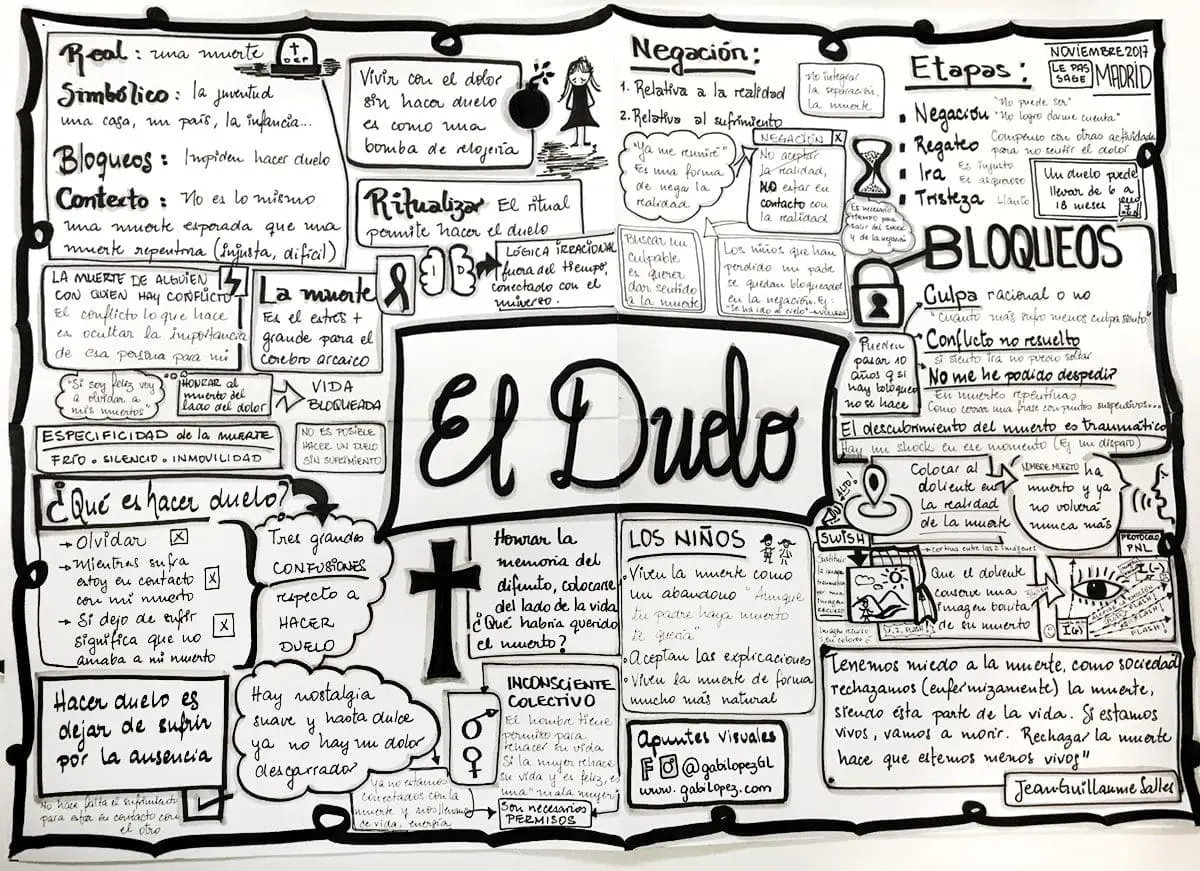 Real : una muerte
DEP
Simbólico : la juventud
una casa, un país, la infancia...
Bloqueos : Impiden hacer duelo
Contexto : No es lo mismo
una muerte esperada que una
muerte repentina (injusta, difícil)
LA MUERTE DE ALGUIEN
CON QUIEN HAY CONFLICTO
El conflicto lo que hace
es ocultar la importancia
de esa persona para mi
La muerte
Es el estrés +
grande para el
cerebro arcaico
"Si soy feliz voy
a olvidar a
mis muertos"
HONRAR al
muerto del
lado del dolor
VIDA
BLOQUEADA
ESPECIFICIDAD de la MUERTE
FRÍO • SILENCIO • INMOVILIDAD
NO ES POSIBLE
HACER UN DUELO
SIN SUFRIMIENTO
Vivir con el dolor
sin hacer duelo
es como una
bomba de relojería
Ritualizar El ritual
permite hacer el duelo
I D
LÓGICA IRRACIONAL
fuera del tiempo,
conectado con el
universo.
Negación :
1. Relativa a la realidad
2. Relativa al sufrimiento
No integrar
la separación,
la muerte
"Ya me reuniré"
Es una forma
de nega la
realidad
NEGACIÓN X
No aceptar
la realidad,
NO estar en
contacto con
la realidad
Buscar un
culpable
es querer
dar sentido
a la muerte
Los niños que han
perdido un padre
se quedan bloqueados
en la negación. Ej:
"Se ha ido al cielo"
Es necesario
tiempo para
salir del shock
y de la negación
Etapas :
NOVIEMBRE 2017
LE PAS
SAGE
MADRID
Negación "No puede ser"
"No logro darme cuenta"
Regateo Compenso con otras actividades
para no sentir el dolor
Ira Es injusto
Es asqueroso
Tristeza Llanto
Un duelo puede
llevar de 6 a
18 meses
BLOQUEOS
Culpa racional o no
"Cuanto más sufro menos culpa siento"
Conflicto no resuelto
Si siento ira no puedo soltar
No me he podido despedir
En muertes repentinas
Como cerrar una frase con puntos suspensivos...
Pueden
pasar 10
años q si
hay bloqueo
no se hace
El descubrimiento del muerto es traumático
Hay un shock en ese momento (Ej un disparo)
El Duelo
¡ALTO!
Colocar al
doliente en
la realidad
de la muerte
NOMBRE MUERTO ha
muerto y ya
no volverá
nunca más
PROTOCOLO
PNL
SWISH
cortina entre las 2 imágenes
Que el doliente
conserve una
imagen bonita
de su muerto
I(-)
I(+)
FLASH!
¿Qué es hacer duelo?
→ Olvidar X
→ Mientras sufra
estoy en contacto X
con mi muerto
→ Si dejo de sufrir
significa que no X
amaba a mi muerto
Tres grandes
CONFUSIONES
respecto a
HACER
DUELO
Hacer duelo es
dejar de sufrir
por la ausencia
No hace falta el sufrimiento
para estar en contacto con
el otro
Hay nostalgia
suave y hasta dulce
ya no hay un dolor
desgarrador
Ya no estamos
conectados con la
muerte y nos llenamos
de vida, energía
Honrar la
memoria del
difunto, colocarse
del lado de la vida
¿Qué habría querido
el muerto?
INCONSCIENTE
COLECTIVO
El hombre tiene
permiso para
rehacer su vida
Si la mujer rehace
su vida y es feliz, es
una "mala mujer"
Son necesarios
PERMISOS
LOS NIÑOS
• Viven la muerte como
un abandono "Aunque
tu padre haya muerto
te quería"
• Aceptan las explicaciones
• Viven la muerte de forma
mucho más natural
Apuntes visuales
@gabilopezGL
www.gabilopez.com
Tenemos miedo a la muerte, como sociedad
rechazamos (enfermizamente) la muerte,
siendo ésta parte de la vida. Si estamos
vivos, vamos a morir. Rechazar la muerte
hace que estemos menos vivos"
Jean Guillaume Salles